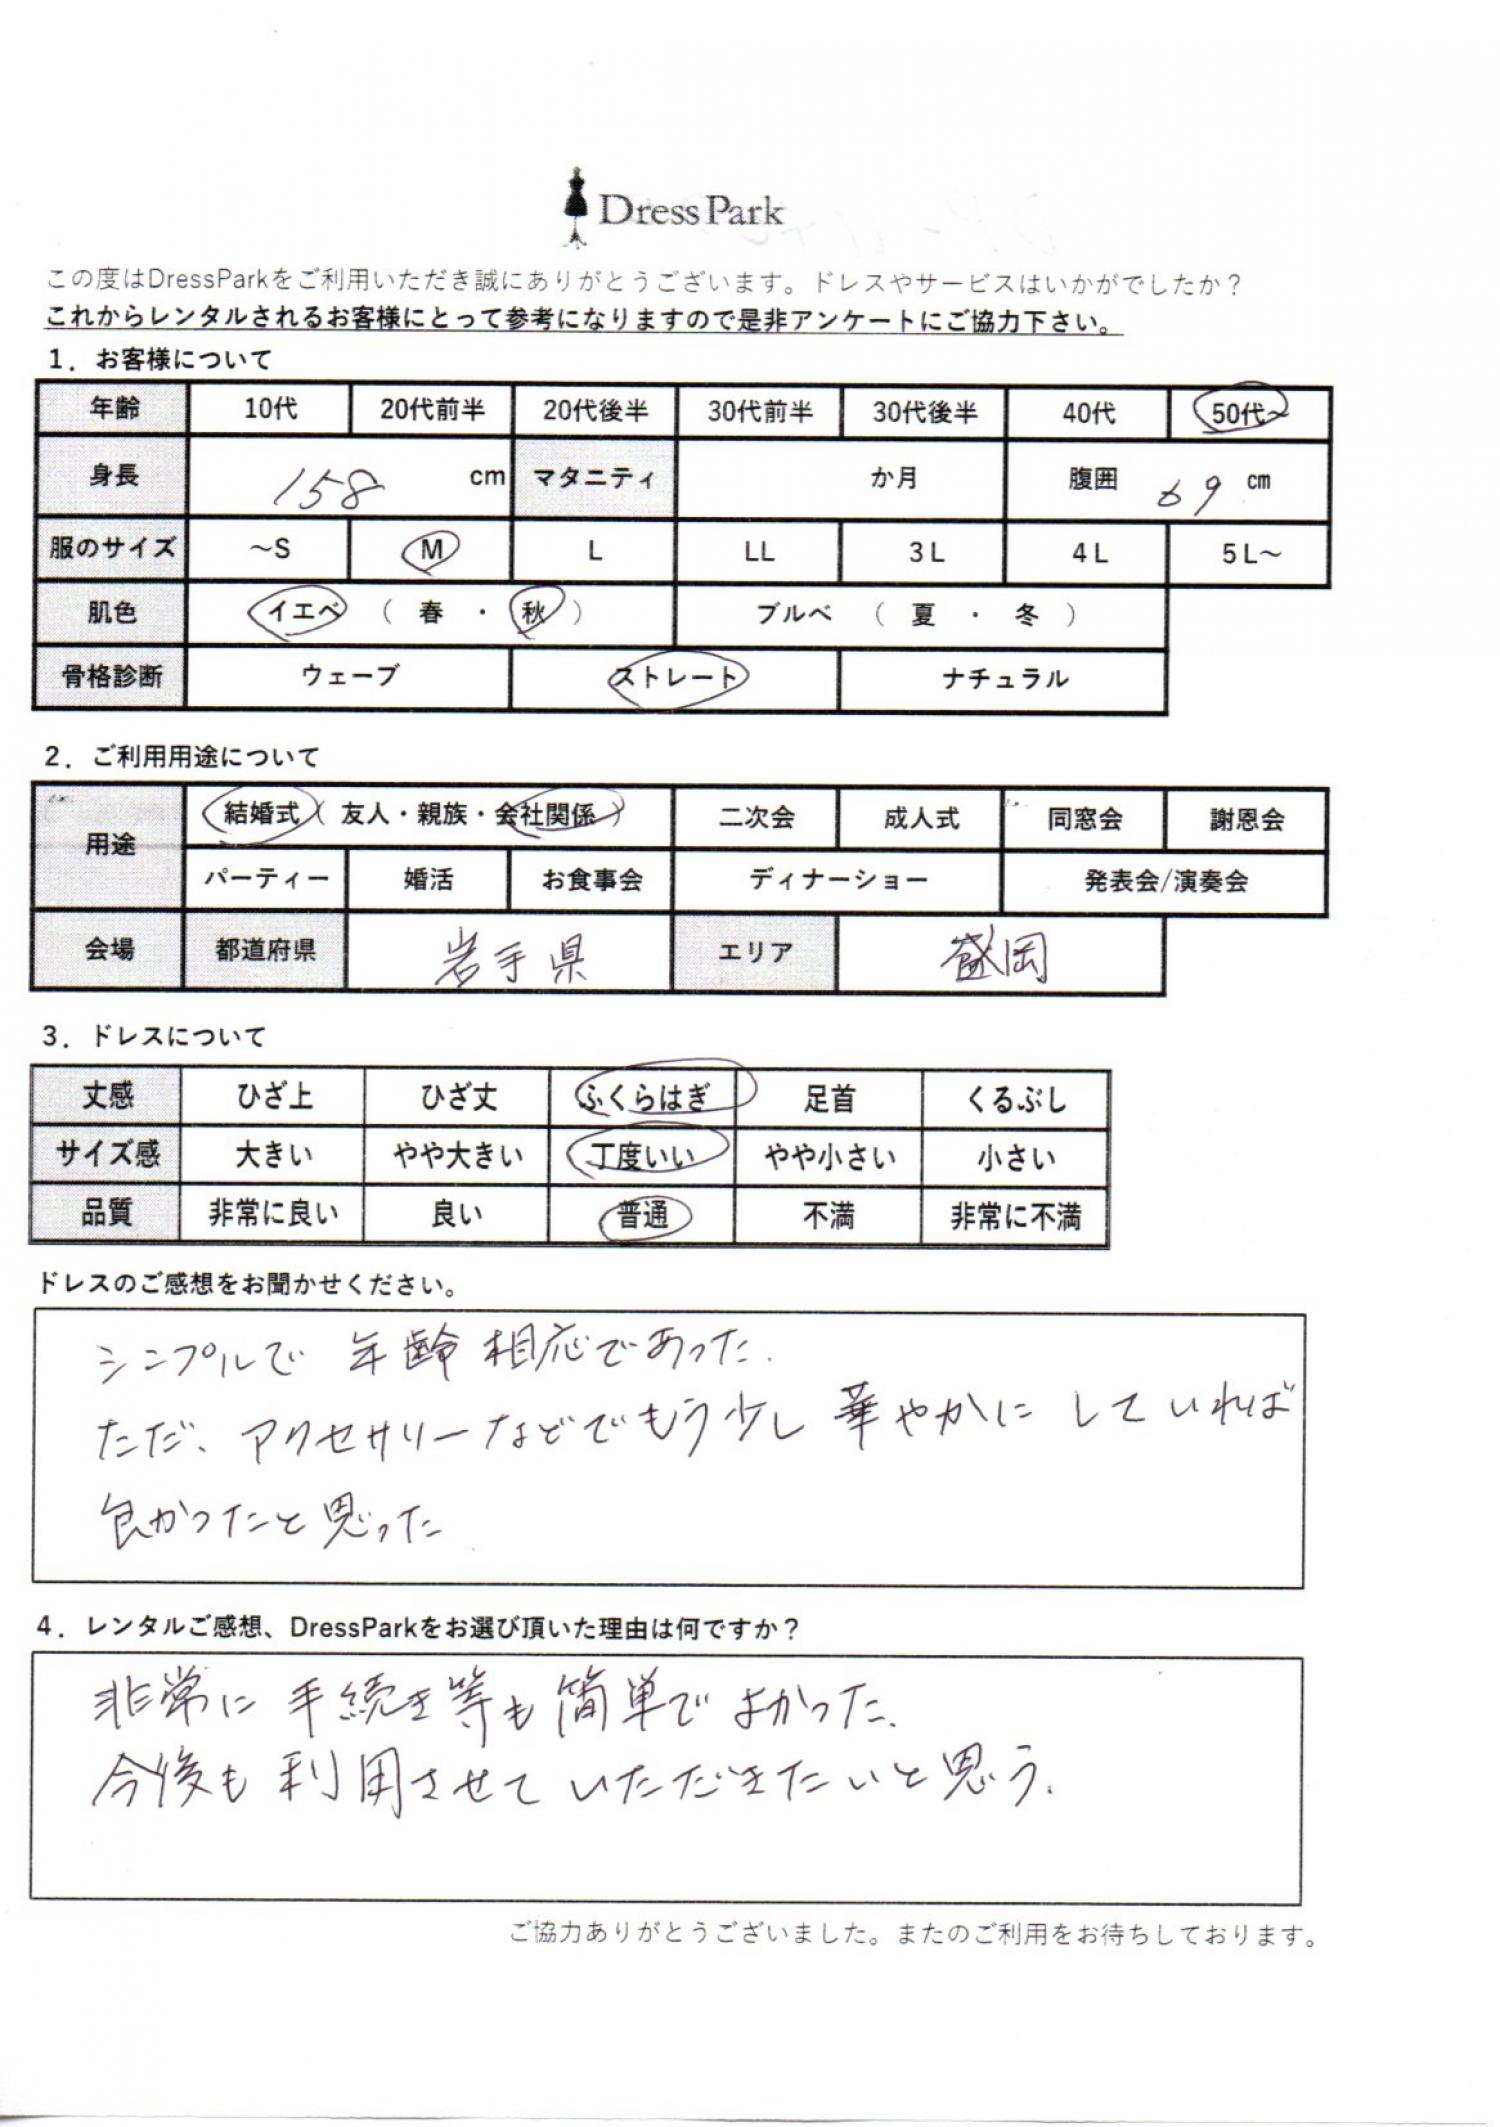 DressPark
この度はDressParkをご利用いただき誠にありがとうございます。ドレスやサービスはいかがでしたか？
これからレンタルされるお客様にとって参考になりますので是非アンケートにご協力下さい。
1．お客様について
年齢 10代 20代前半 20代後半 30代前半 30代後半 40代 50代～
身長 158 cm マタニティ か月 腹囲 69 cm
服のサイズ ～S M L LL 3L 4L 5L～
肌色 イエベ （ 春 ・ 秋 ） ブルベ （ 夏 ・ 冬 ）
骨格診断 ウェーブ ストレート ナチュラル
2．ご利用用途について
用途 結婚式（ 友人・親族・会社関係 ） 二次会 成人式 同窓会 謝恩会
パーティー 婚活 お食事会 ディナーショー 発表会/演奏会
会場 都道府県 岩手県 エリア 盛岡
3．ドレスについて
丈感 ひざ上 ひざ丈 ふくらはぎ 足首 くるぶし
サイズ感 大きい やや大きい 丁度いい やや小さい 小さい
品質 非常に良い 良い 普通 不満 非常に不満
ドレスのご感想をお聞かせください。
シンプルで 年齢相応であった.
ただ、アクセサリーなどでもう少し華やかにしていれば
良かったと思った
4．レンタルご感想、DressParkをお選び頂いた理由は何ですか？
非常に手続き等も簡単でよかった.
今後も利用させていただきたいと思う.
ご協力ありがとうございました。またのご利用をお待ちしております。